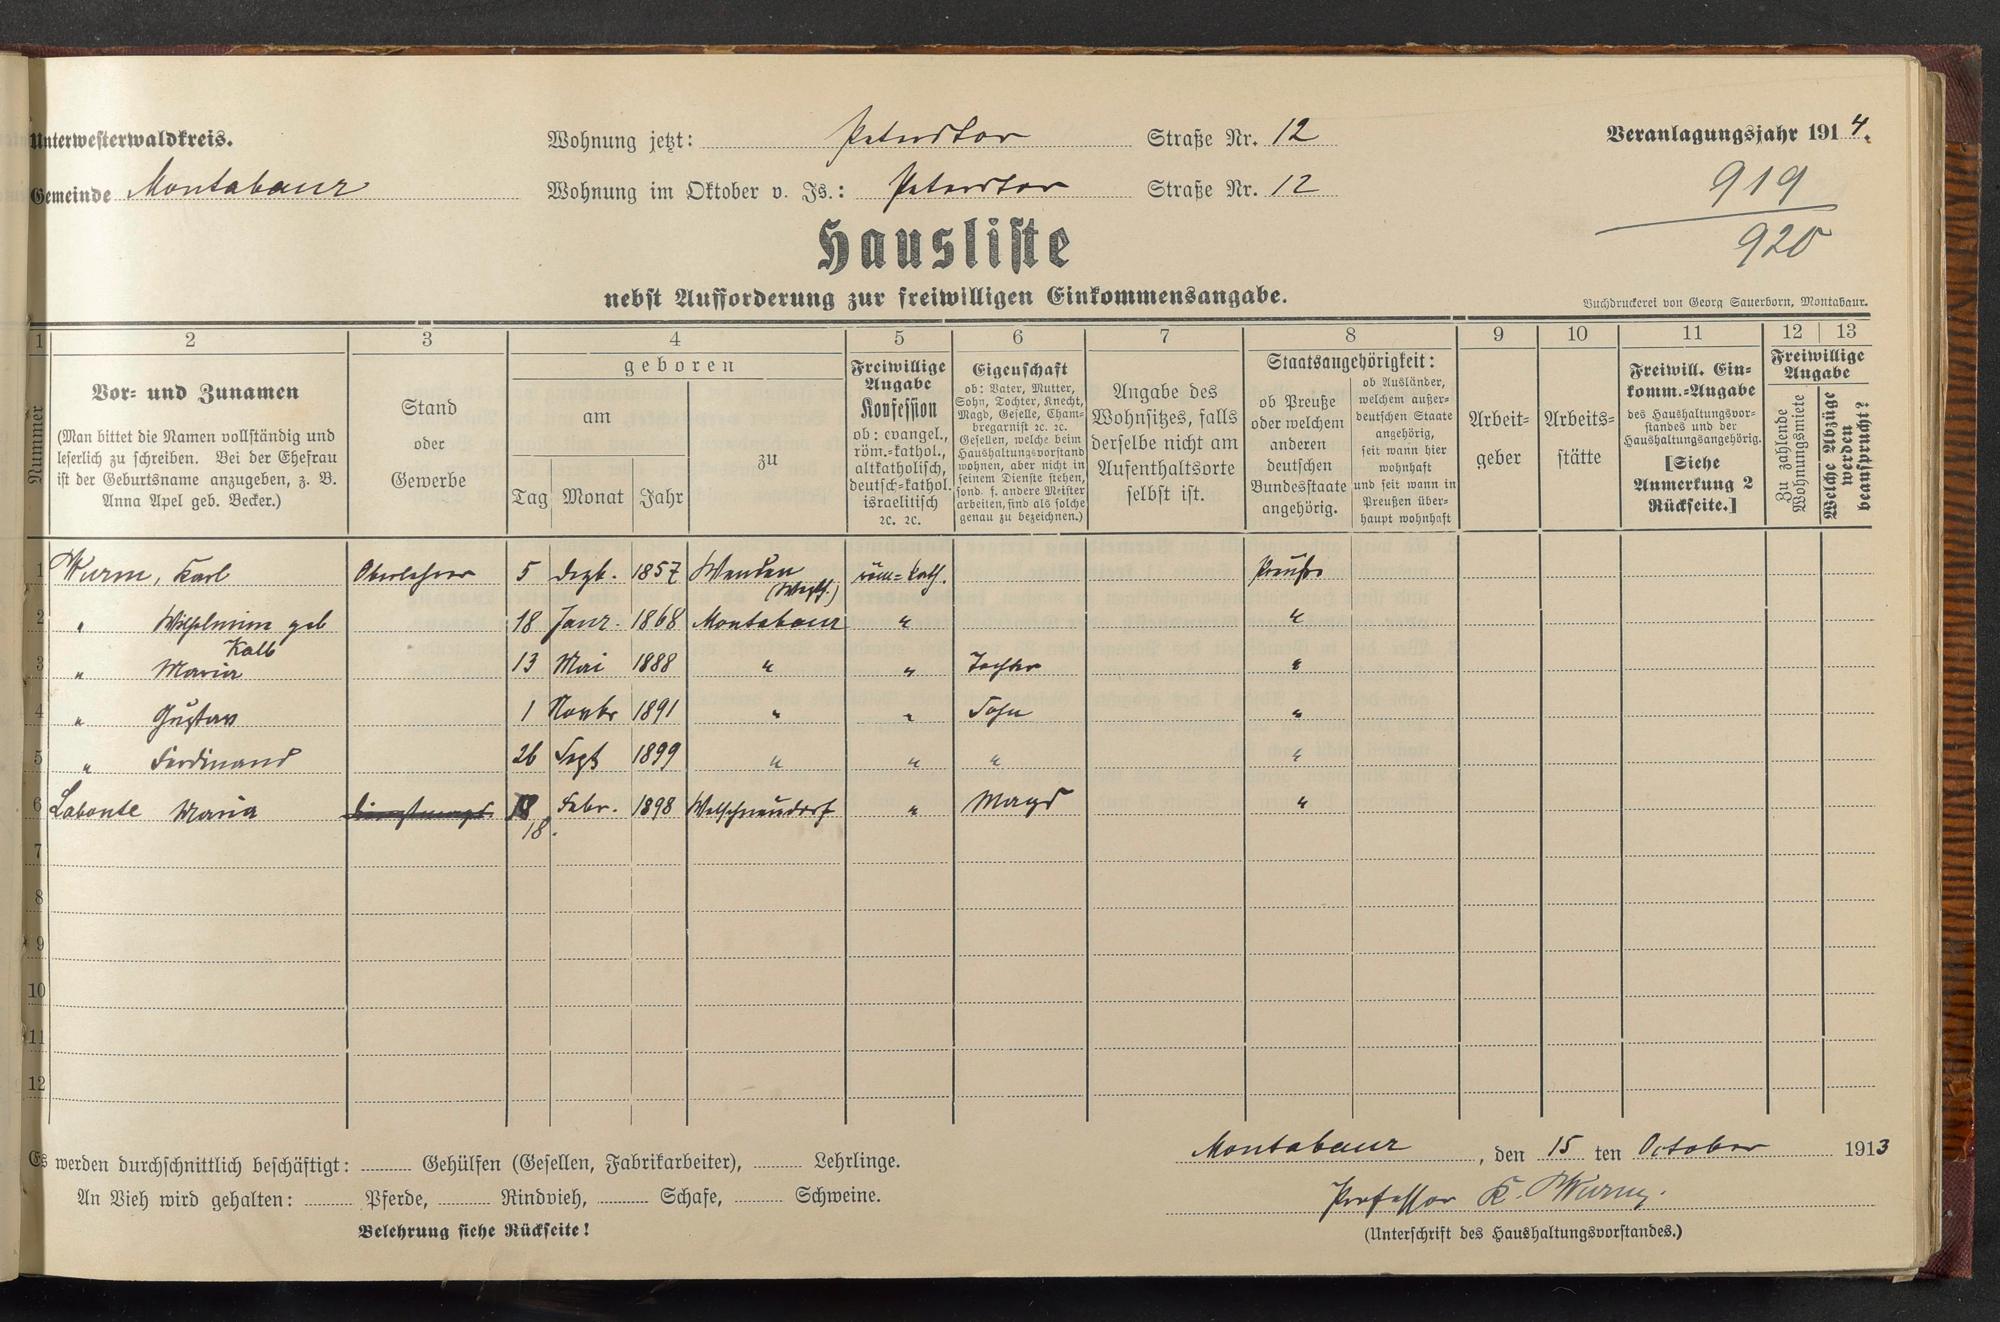 Unterwesterwaldkreis.
Wohnung jetzt: Peterstor Straße Nr. 12
Veranlagungsjahr 1914.
Gemeinde Montabaur
Wohnung im Oktober v. Js.: Peterstor Straße Nr. 12
919
920
Hausliste
nebst Aufforderung zur freiwilligen Einkommensangabe.
Buchdruckerei von Georg Sauerborn, Montabaur.
1 2 3 4 5 6 7 8 9 10 11 12 13
Nummer
Vor- und Zunamen
(Man bittet die Namen vollständig und
leserlich zu schreiben. Bei der Ehefrau
ist der Geburtsname anzugeben, z. B.
Anna Apel geb. Becker.)
Stand
oder
Gewerbe
geboren
am
Tag Monat Jahr
zu
Freiwillige
Angabe
Konfession
ob: evangel.,
röm.-kathol.,
altkatholisch,
deutsch-kathol.
israelitisch
ꝛc. ꝛc.
Eigenschaft
ob: Vater, Mutter,
Sohn, Tochter, Knecht,
Magd, Geselle, Cham-
bregarnist ꝛc. ꝛc.
Gesellen, welche beim
Haushaltungsvorstand
wohnen, aber nicht in
seinem Dienste stehen,
sond. f. andere Meister
arbeiten, sind als solche
genau zu bezeichnen.)
Angabe des
Wohnsitzes, falls
derselbe nicht am
Aufenthaltsorte
selbst ist.
Staatsangehörigkeit:
ob Preuße
oder welchem
anderen
deutschen
Bundesstaate
angehörig.
ob Ausländer,
welchem außer-
deutschen Staate
angehörig,
seit wann hier
wohnhaft
und seit wann in
Preußen über-
haupt wohnhaft
Arbeit-
geber
Arbeits-
stätte
Freiwill. Ein-
komm.-Angabe
des Haushaltungsvor-
standes und der
Haushaltungsangehörig.
[Siehe
Anmerkung 2
Rückseite.]
Freiwillige
Angabe
Zu zahlende
Wohnungsmiete
Welche Abzüge
werden
beansprucht?
1 Wurm, Karl Oberlehrer 5 Dezb. 1857 Wenden röm=kath. Preuße
(Westf.)
2 " Wilhelmine geb 18 Janr. 1868 Montabaur " "
Kalb
3 " Maria 13 Mai 1888 " " Tochter "
4 " Gustav 1 Novbr 1891 " " Sohn "
5 " Ferdinand 26 Sept 1899 " " " "
6 Labonte Maria Dienstmagd 18 Febr. 1898 Welschneudorf " Magd "
18.
7
8
9
10
11
12
Es werden durchschnittlich beschäftigt: Gehülfen (Gesellen, Fabrikarbeiter), Lehrlinge.
An Vieh wird gehalten: Pferde, Rindvieh, Schafe, Schweine.
Belehrung siehe Rückseite!
Montabaur, den 15 ten October 1913
Professor K. Wurm.
(Unterschrift des Haushaltungsvorstandes.)